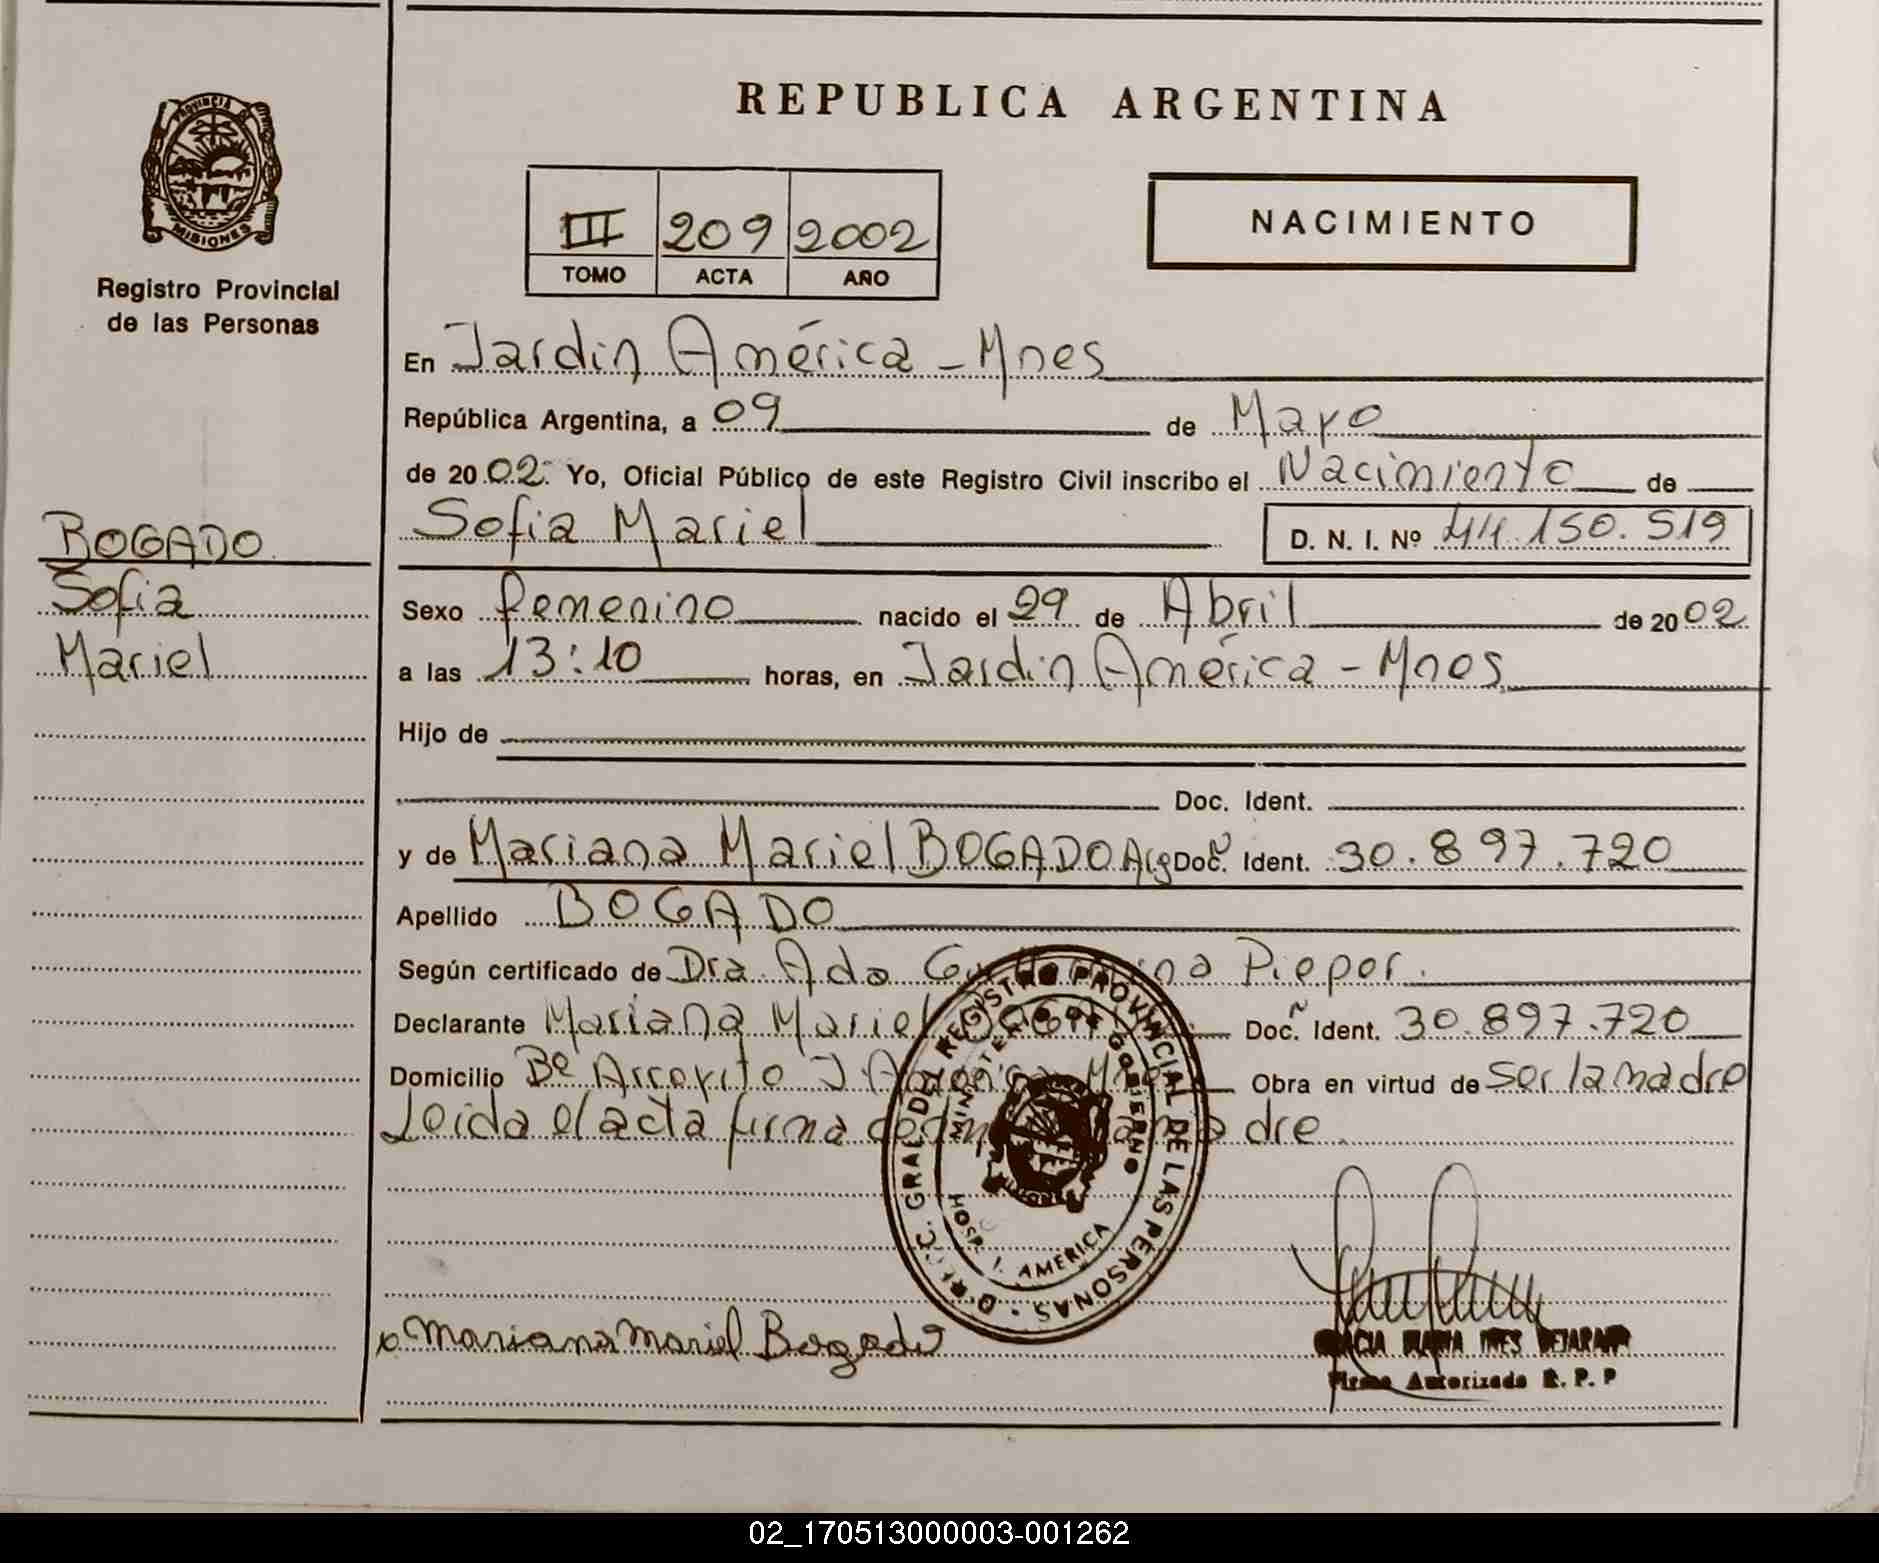 REPUBLICA ARGENTINA
PROVINCIA DE
MISIONES
Registro Provincial
de las Personas
III 209 2002
TOMO ACTA AÑO
NACIMIENTO
En Jardin América - Mnes
República Argentina, a 09 de Mayo
de 20 02. Yo, Oficial Público de este Registro Civil inscribo el Nacimiento de
Sofia Mariel D. N. I. Nº 44.150.519
BOGADO
Sofia
Mariel
Sexo femenino nacido el 29 de Abril de 20 02
a las 13:10 horas, en Jardin América - Mnes
Hijo de
Doc. Ident.
y de Mariana Mariel BOGADO Arg Doc. Ident. 30.897.720
Apellido BOGADO
Según certificado de Dra. Ada Pieper.
Declarante Mariana Mariel Doc. Ident. 30.897.720
Domicilio Bº Arroyito J. América Obra en virtud de Ser la madre
Leida el acta firma la madre.
DIREC. GRAL DEL REGISTRO PROVINCIAL DE LAS PERSONAS
MINISTERIO DE GOBIERNO
HOSP. J. AMERICA
x Mariana Mariel Bogado
GRACIA MARIA INES BEJARANO
Firma Autorizada R. P. P
02_170513000003-001262